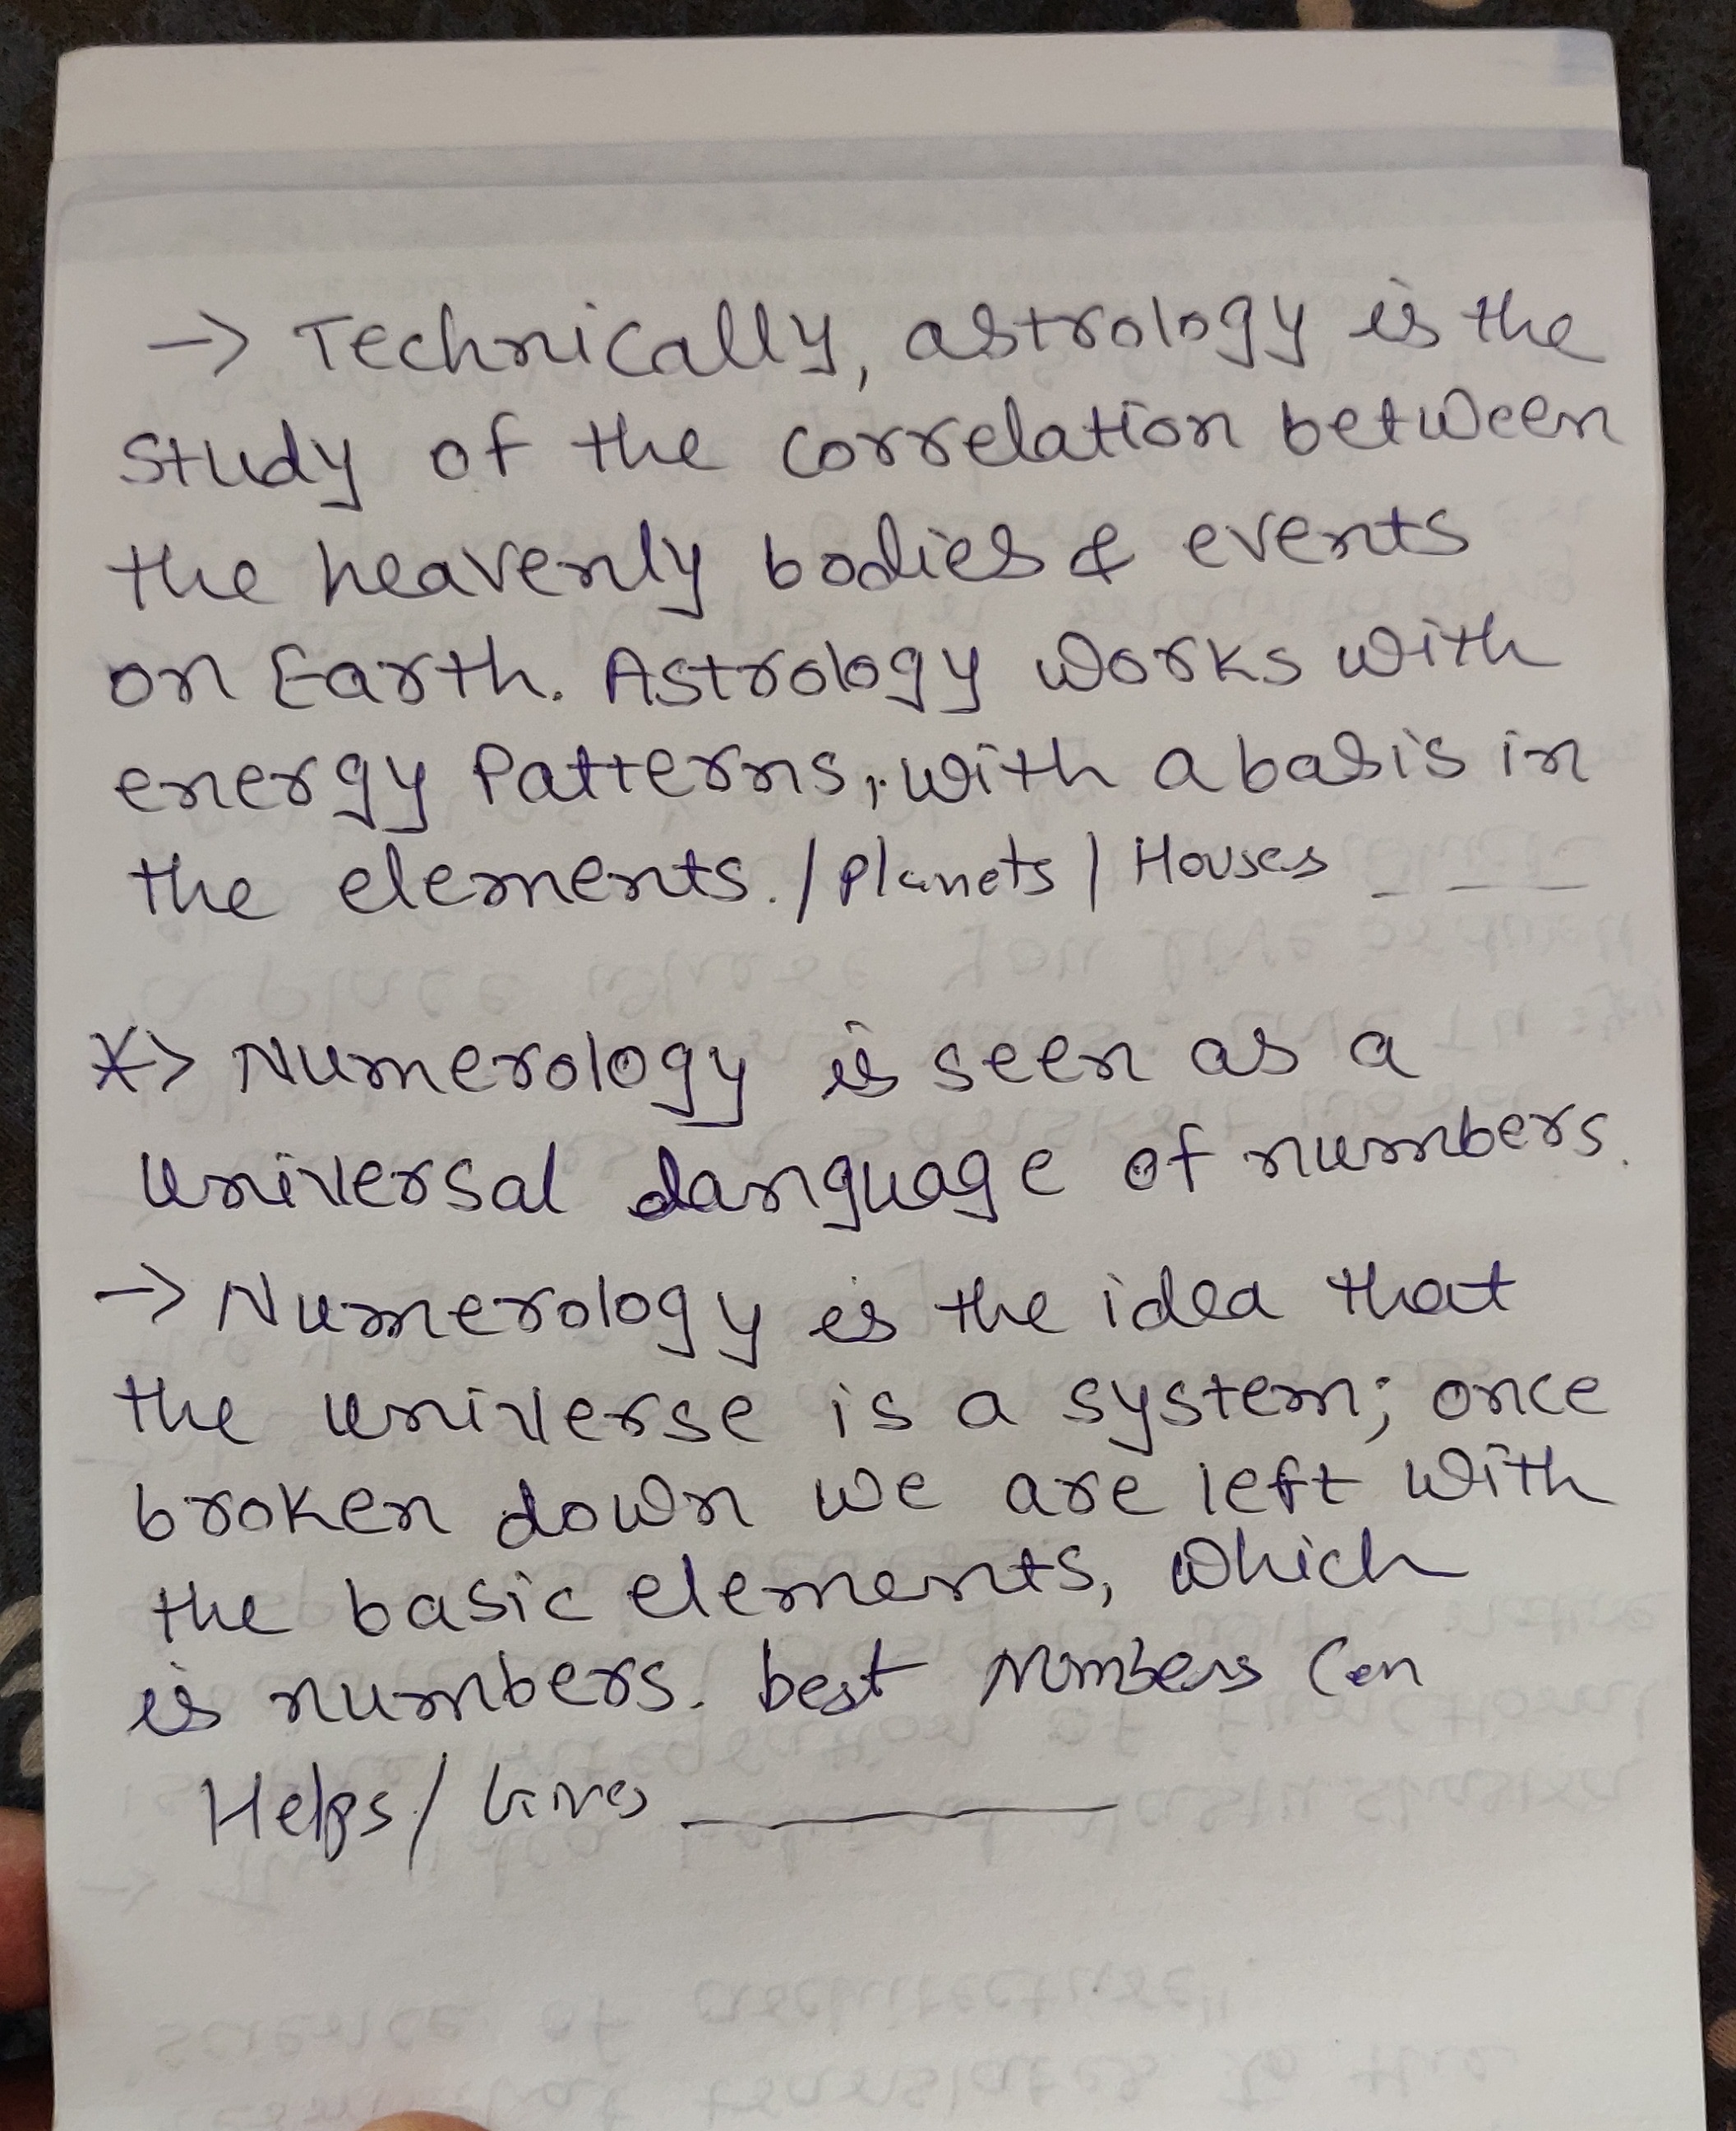 -> Technically, astrology is the
study of the correlation between
the heavenly bodies & events
on Earth. Astrology works with
energy Patterns, with a basis in
the elements. / Planets / Houses _ _ _ _
*> Numerology is seen as a
universal language of numbers.
-> Numerology is the idea that
the universe is a system; once
broken down we are left with
the basic elements, which
is numbers. best Numbers Can
Helps /